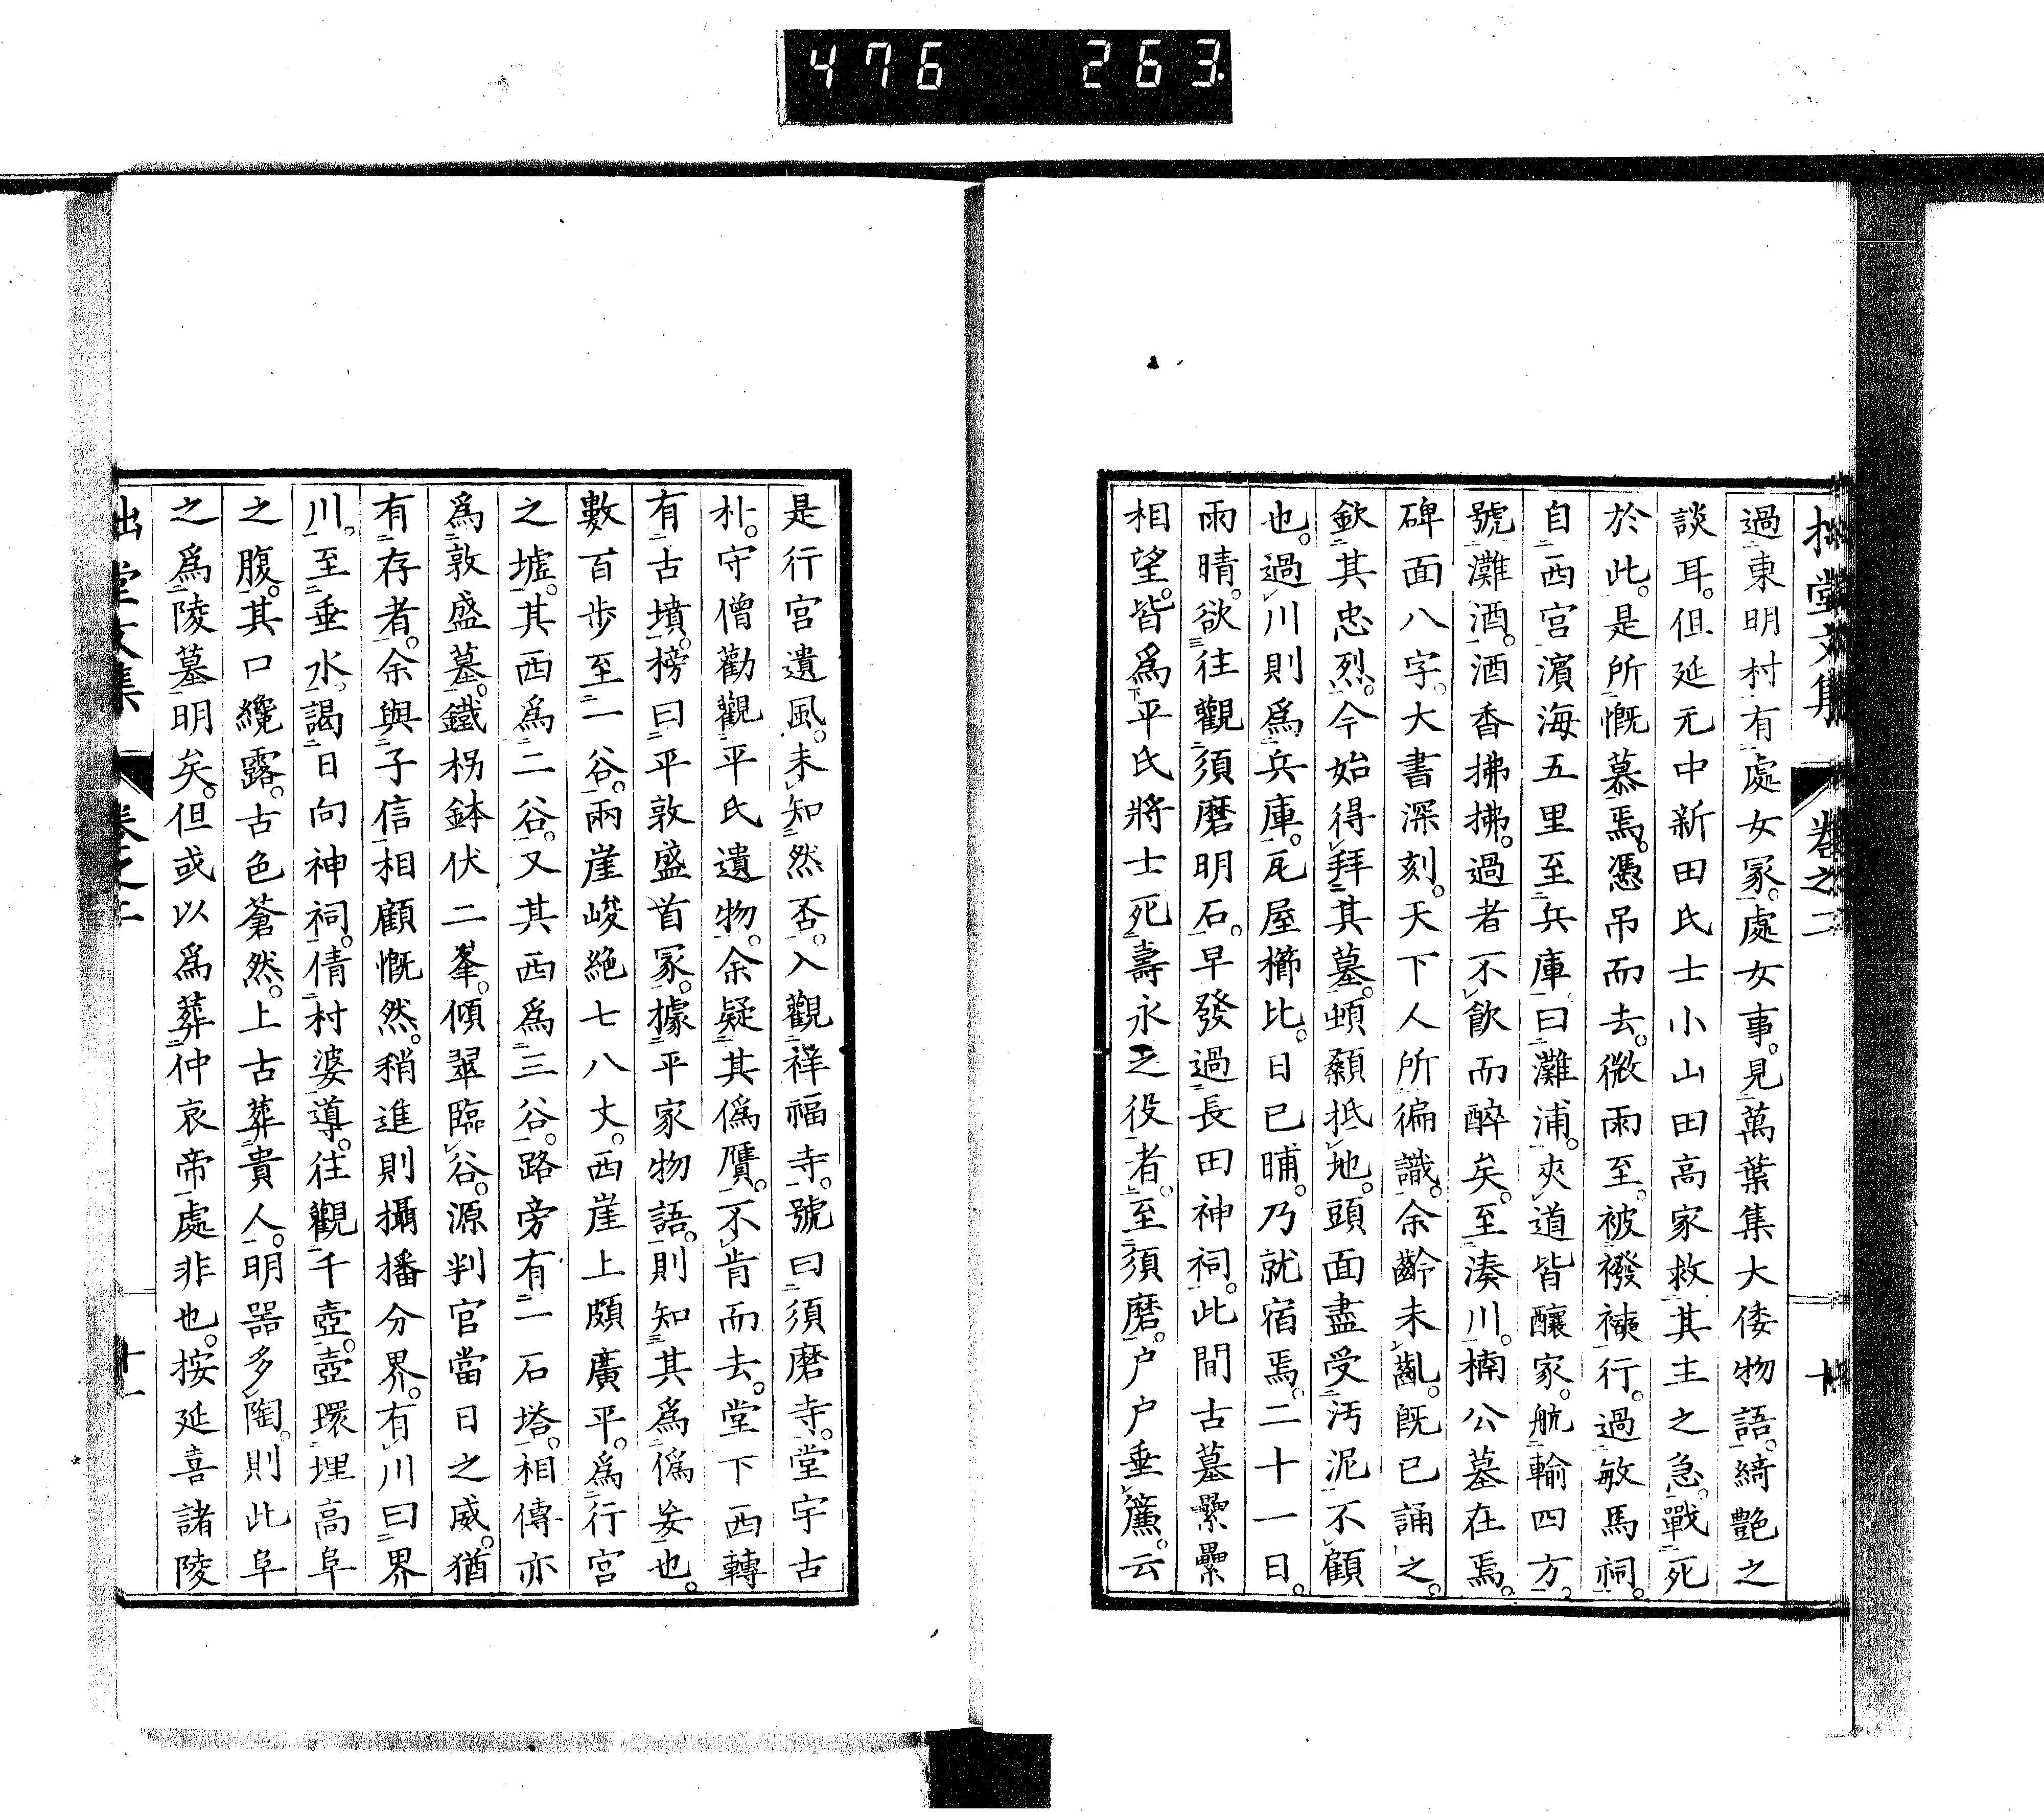 476 263.
拙堂文集 卷之二 十
過東明村有處女冢。處女事。見萬葉集大倭物語。綺艶之
談耳。但延元中新田氏士小山田高家救其主之急。戰死
於此。是所慨慕焉。憑吊而去。微雨至。被襏襫行。過敏馬祠。
自西宮濱海五里至兵庫。曰灘浦。夾道皆釀家。航輸四方。
號灘酒。酒香拂拂。過者不飲而醉矣。至湊川。楠公墓在焉。
碑面八字。大書深刻。天下人所徧識。余齡未齓。旣已誦之。
欽其忠烈。今始得拜其墓。頓顙抵地。頭面盡受汚泥不顧
也。過川則爲兵庫。瓦屋櫛比。日已晡。乃就宿焉。二十一日。
雨晴。欲往觀須磨明石。早發過長田神祠。此間古墓纍纍
相望。皆爲平氏將士死壽永之役者。至須磨。户户垂簾。云
是行宮遺風。未知然否。入觀祥福寺。號曰須磨寺。堂宇古
朴。守僧勸觀平氏遺物。余疑其僞贋。不肯而去。堂下西轉
有古墳。榜曰平敦盛首冢。據平家物語。則知其爲僞妄也。
數百步至一谷。兩崖峻絶七八丈。西崖上頗廣平。爲行宮
之墟。其西爲二谷。又其西爲三谷。路旁有一石塔。相傳亦
爲敦盛墓。鐵枴鉢伏二峯。傾翠臨谷。源判官當日之威。猶
有存者。余與子信相顧慨然。稍進則攝播分界。有川曰界
川。至垂水。謁日向神祠。倩村婆導。往觀千壺。壺環埋高阜
之腹。其口纔露。古色蒼然。上古葬貴人。明器多陶。則此阜
之爲陵墓明矣。但或以爲葬仲哀帝處非也。按延喜諸陵
拙堂文集 卷之二 十一